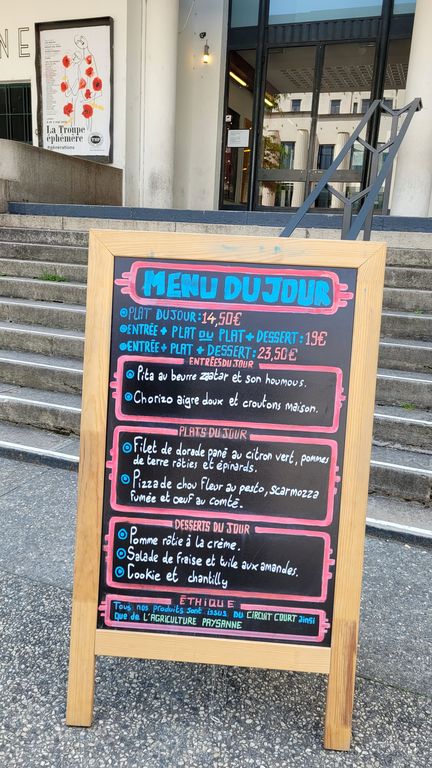 NE
La Troupe
éphémère
#générations
MENU DU JOUR
PLAT DU JOUR : 14,50€
ENTRÉE + PLAT OU PLAT + DESSERT : 19€
ENTRÉE + PLAT + DESSERT : 23,50€
ENTRÉES DU JOUR
Pita au beurre zaatar et son houmous.
Chorizo aigre doux et croutons maison.
PLATS DU JOUR
Filet de dorade pané au citron vert, pommes
de terre râties et épinards.
Pizza de chou fleur au pesto, scarmozza
fumée et oeuf au comté.
DESSERTS DU JOUR
Pomme râtie à la crème.
Salade de fraise et tuile aux amandes.
Cookie et chantilly
ÉTHIQUE
Tous nos produits sont issus du CIRCUIT COURT ainsi
que de L'AGRICULTURE PAYSANNE